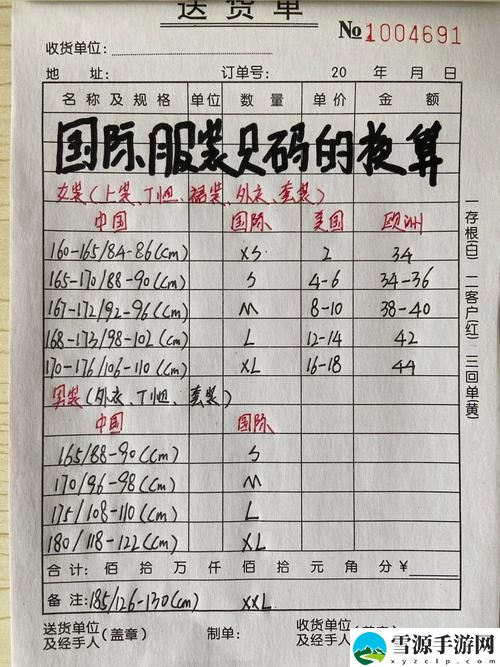 送货单
№1004691
收货单位:
地 址: 订单号: 20 年 月 日
名称及规格 单位 数量 单价 金额
国际服装尺码的换算
女装(上装、T恤、裙装、外衣、套装)
中国 国际 美国 欧洲
160-165/84-86(cm) XS 2 34
165-170/88-90(cm) S 4-6 34-36
167-172/92-96(cm) M 8-10 38-40
168-173/98-102(cm) L 12-14 42
170-176/106-110(cm) XL 16-18 44
男装(外衣、T恤、套装)
中国 国际
165/88-90(cm) S
170/96-98(cm) M
175/108-110(cm) L
180/118-122(cm) XL
合计: 佰 拾 万 仟 佰 拾 元 角 分 ¥
备注: 185/126-130(cm) XXL
送货单位及经手人(盖章) 制单:
一存根(白) 二客户(红) 三回单(黄)
雪源手游网
www.xyzclp.com